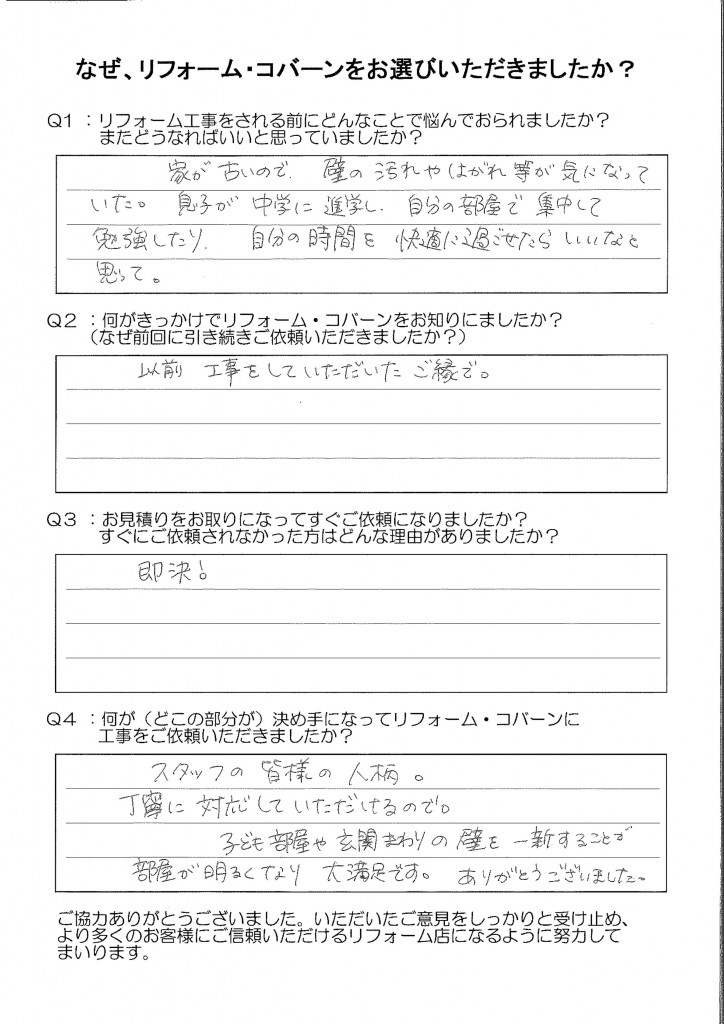 なぜ、リフォーム・コバーンをお選びいただきましたか？
Q1 ：リフォーム工事をされる前にどんなことで悩んでおられましたか？
またどうなればいいと思っていましたか？
家が古いので、壁の汚れやはがれ等が気になって
いた。息子が中学に進学し、自分の部屋で集中して
勉強したり、自分の時間を快適に過ごせたらいいなと
思って。
Q2 ：何がきっかけでリフォーム・コバーンをお知りにましたか？
（なぜ前回に引き続きご依頼いただきましたか？）
以前 工事をしていただいたご縁で。
Q3 ：お見積りをお取りになってすぐご依頼になりましたか？
すぐにご依頼されなかった方はどんな理由がありましたか？
即決！
Q4 ：何が（どこの部分が）決め手になってリフォーム・コバーンに
工事をご依頼いただきましたか？
スタッフの皆様の人柄。
丁寧に対応していただけるので。
子ども部屋や玄関まわりの壁を一新することが
部屋が明るくなり 大満足です。ありがとうございました。
ご協力ありがとうございました。いただいたご意見をしっかりと受け止め、
より多くのお客様にご信頼いただけるリフォーム店になるように努力して
まいります。